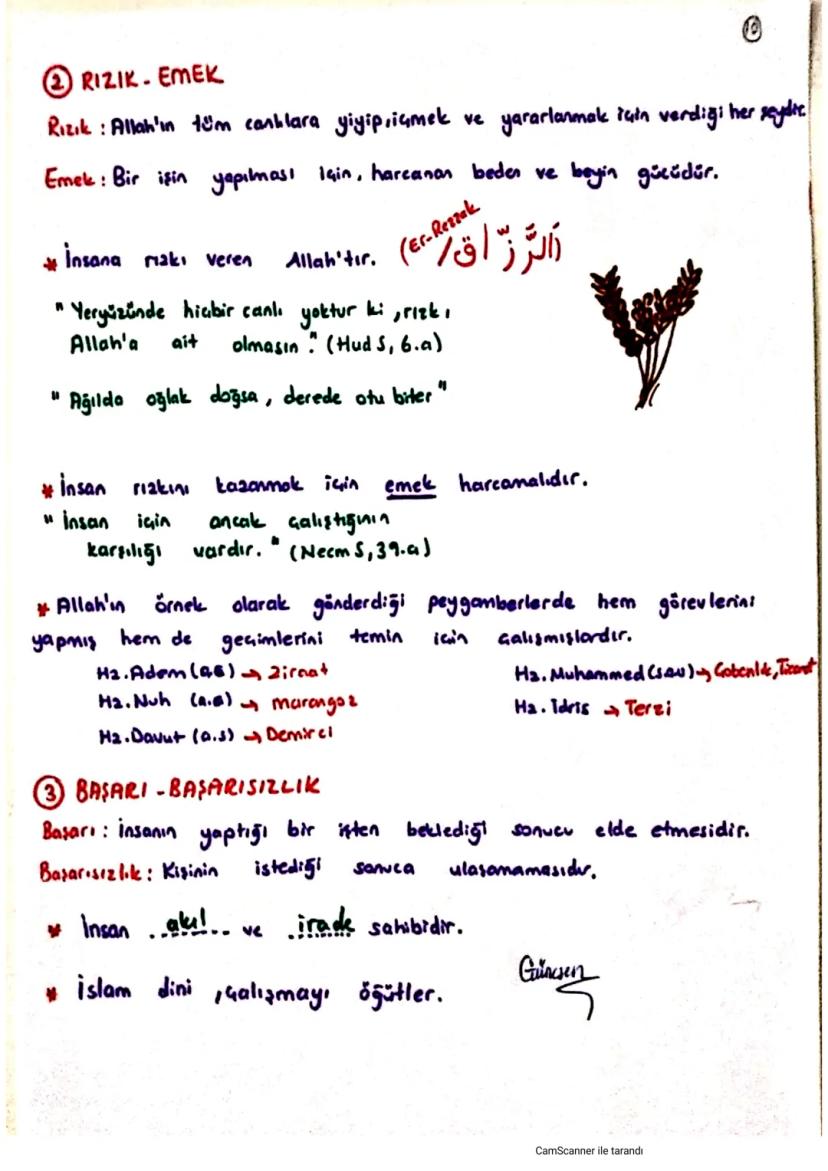 10
② RIZIK - EMEK
Rızık : Allah'ın tüm canlılara yiyip, içmek ve yararlanmak için verdiği her şeydir.
Emek : Bir işin yapılması için, harcanan beden ve beyin gücüdür.
* İnsana rızkı veren Allah'tır. (Er-Rezzak / اَلرَّزَّاق)
" Yeryüzünde hiçbir canlı yoktur ki , rızkı
Allah'a ait olmasın ." (Hud S, 6.a)
" Ağılda oğlak doğsa , derede otu biter "
* İnsan rızkını kazanmak için emek harcamalıdır.
" İnsan için ancak çalıştığının
karşılığı vardır. " (Necm S, 39.a)
* Allah'ın örnek olarak gönderdiği peygamberlerde hem görevlerini
yapmış hem de geçimlerini temin için çalışmışlardır.
Hz. Adem (a.s) → Ziraat
Hz. Nuh (a.s) → marangoz
Hz. Davut (a.s) → Demirci
Hz. Muhammed (s.a.v) → Çobanlık, Ticaret
Hz. İdris → Terzi
③ BAŞARI - BAŞARISIZLIK
Başarı : İnsanın yaptığı bir işten beklediği sonucu elde etmesidir.
Başarısızlık : Kişinin istediği sonuca ulaşamamasıdır.
* İnsan ..akıl.... ve .irade sahibidir.
* İslam dini , çalışmayı öğütler.
Günçsen
CamScanner ile tarandı